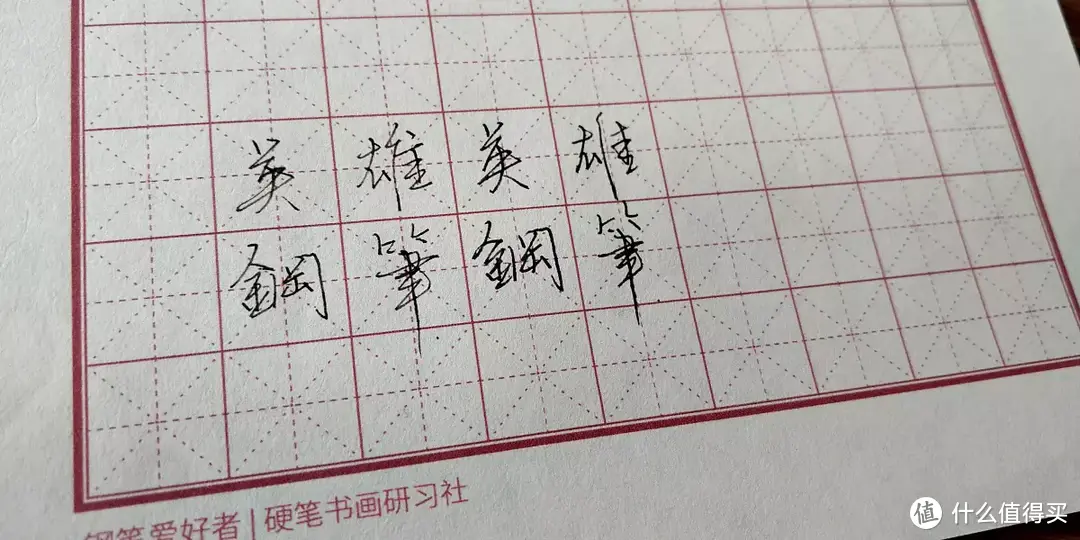 英雄英雄
鋼筆鋼筆
钢笔爱好者 | 硬笔书画研习社
值 什么值得买